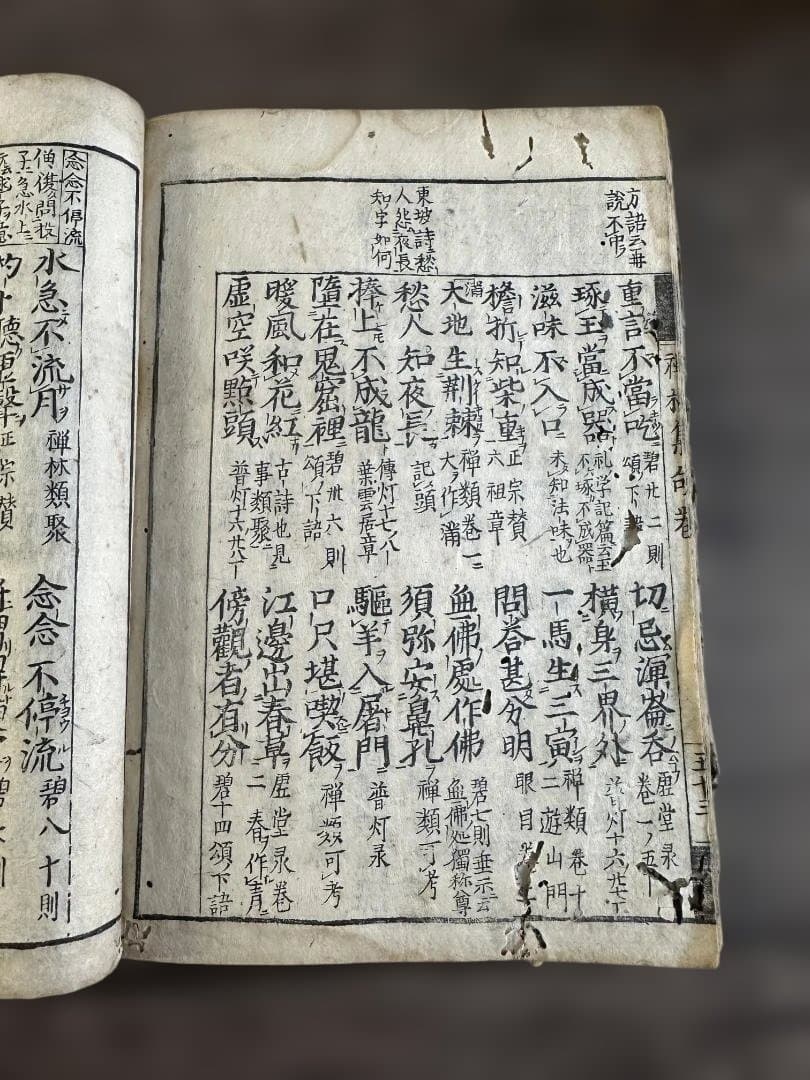 方語云再
說不中
東坡詩愁
人怨夜長
知字如何
重言不當吃 碧廿二則頌ノ下語
切忌渾崙吞 虛堂录卷一ノ五
琢玉當成器 礼学記篇云玉不琢不成器
橫身三界外 普灯十六廿
滋味不入口 未知法味也
一馬生三寅 禅類卷十二遊山門
檐折知柴重 正宗賛六祖章
問荅甚分明 眼目
滿
大地生荆棘 禅類卷一二大作滿
無佛處作佛 碧七則垂示云無佛処獨称尊
愁人知夜長 頭
須弥安鼻孔 禅類可考
捧上不成龍 傳灯十七八葉雲居章
驅羊入屠門 普灯录
墮在鬼窟裡 碧卅六則頌ノ下語
口只堪喫飯 禅類可考
暖風和花紅 古詩也見事類聚
江邊出春草 虛堂录卷二春作青
虛空咲點頭 普灯十六廿八
傍觀者有分 碧十四頌下語
五十三
念念不停流
僧俊問投
子急水上
水急不流月 禅林類聚
念念不停流 碧八十則